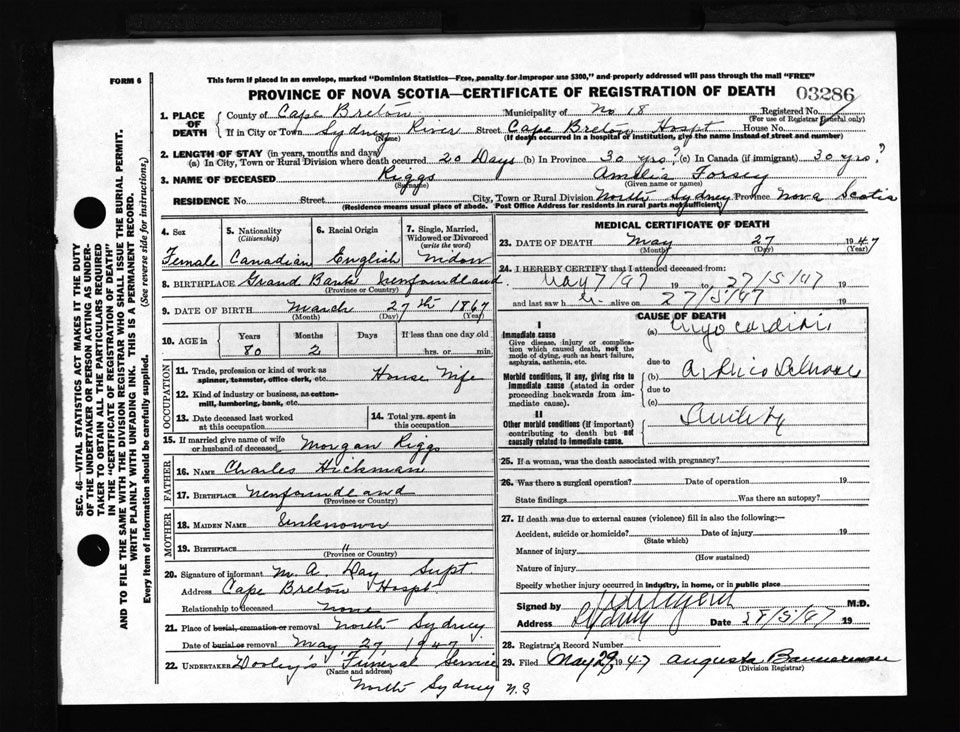 FORM 6
This form if placed in an envelope, marked "Dominion Statistics—Free, penalty for improper use $300," and properly addressed will pass through the mail "FREE"
PROVINCE OF NOVA SCOTIA—CERTIFICATE OF REGISTRATION OF DEATH 03286
1. PLACE OF DEATH
County of Cape Breton Municipality of No 18 Registered No.
(For use of Registrar General only)
If in City or Town Sydney River Street Cape Breton Hospt House No.
(Name) (If death occurred in a hospital or institution, give the name instead of street and number)
2. LENGTH OF STAY (in years, months and days)
(a) In City, Town or Rural Division where death occurred 20 Days (b) In Province 30 yrs? (c) In Canada (if immigrant) 30 yrs?
3. NAME OF DECEASED Riggs Amelia Forsey
(Surname) (Given name or names)
RESIDENCE No. Street City, Town or Rural Division North Sydney Province Nova Scotia
(Residence means usual place of abode. Post Office Address for residents in rural parts not sufficient)
4. Sex 5. Nationality 6. Racial Origin 7. Single, Married, Widowed or Divorced
(Citizenship) (write the word)
Female Canadian English Widow
8. BIRTHPLACE Grand Bank Newfoundland
(Province or Country)
9. DATE OF BIRTH March 27th 1867
(Month) (Day) (Year)
10. AGE in Years Months Days If less than one day old
80 2 hrs. or min.
OCCUPATION
11. Trade, profession or kind of work as spinner, teamster, office clerk, etc. House Wife
12. Kind of industry or business, as cotton-mill, lumbering, bank, etc.
13. Date deceased last worked at this occupation 14. Total yrs. spent in this occupation
15. If married give name of wife or husband of deceased Morgan Riggs
FATHER
16. NAME Charles Hickman
17. BIRTHPLACE Newfoundland
(Province or Country)
MOTHER
18. MAIDEN NAME Unknown
19. BIRTHPLACE "
(Province or Country)
20. Signature of informant M. A. Day Supt.
Address Cape Breton Hospt.
Relationship to deceased none
21. Place of burial, cremation or removal North Sydney
Date of burial or removal May 27 1947
22. UNDERTAKER Dooley's Funeral Service
(Name and address)
North Sydney N.S
MEDICAL CERTIFICATE OF DEATH
23. DATE OF DEATH May 27 1947
(Month) (Day) (Year)
24. I HEREBY CERTIFY that I attended deceased from:
May 7/47 19 to 27/5/47 19
and last saw h alive on 27/5/47 19
CAUSE OF DEATH
I
Immediate cause
Give disease, injury or complication which caused death, not the mode of dying, such as heart failure, asphyxia, asthenia, etc.
(a) Myocarditis
due to
Morbid conditions, if any, giving rise to immediate cause (stated in order proceeding backwards from immediate cause).
(b)
due to
(c)
II
Other morbid conditions (if important) contributing to death but not causally related to immediate cause.
Senility
25. If a woman, was the death associated with pregnancy?
26. Was there a surgical operation? Date of operation 19
State findings Was there an autopsy?
27. If death was due to external causes (violence) fill in also the following:—
Accident, suicide or homicide? Date of injury 19
(State which)
Manner of injury
(How sustained)
Nature of injury
Specify whether injury occurred in industry, in home, or in public place
Signed by M.D.
Address Sydney Date 28/5/47 19
28. Registrar's Record Number
29. Filed May 29 1947 Augusta Bannerman
(Division Registrar)
SEC. 46—VITAL STATISTICS ACT MAKES IT THE DUTY
OF THE UNDERTAKER OR PERSON ACTING AS UNDER-
TAKER TO OBTAIN ALL THE PARTICULARS REQUIRED
IN THE "CERTIFICATE OF REGISTRATION OF DEATH"
AND TO FILE THE SAME WITH THE DIVISION REGISTRAR WHO SHALL ISSUE THE BURIAL PERMIT.
WRITE PLAINLY WITH UNFADING INK. THIS IS A PERMANENT RECORD.
Every item of information should be carefully supplied. (See reverse side for instructions.)